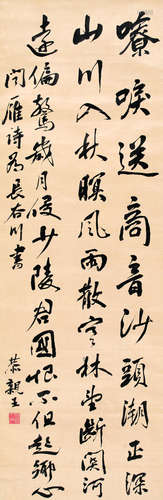 嘹唳送商音沙頭潮正深
山川入秋暝風雨散寒林望斷關河
遠偏驚歲月侵少陵君國恨不但起鄉心
聞雁詩為長谷川書
恭親王